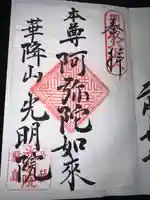 奉拝
本尊 阿弥陀如来
華降山 光明院